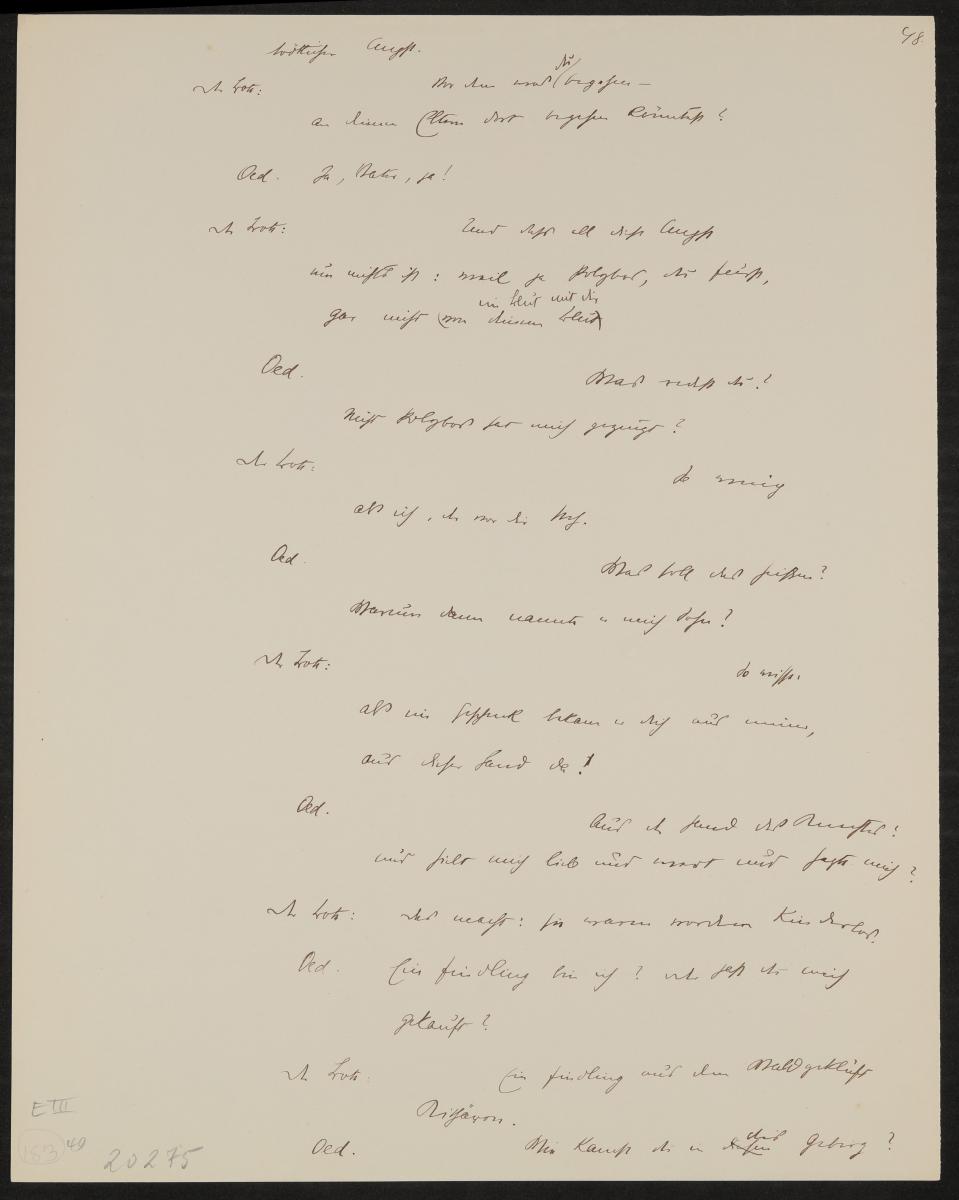 48.
tödtlicher Angst.
der Bote: Vor dem was du begehen –
an deinen Eltern dort begehen könntest?
Oed. Ja, Vater, ja!
der Bote: Und dass all diese Angst
um nichts ist: weil ja Polybos, du hörst,
ein Blut mit dir
gar nicht von deinem Blut
Oed. Was redest du?
Nicht Polybos hat mich gezeugt?
der Bote: So wenig
als ich, der vor dir steh.
Oed. Was soll das heißen?
Warum denn nannte er mich Sohn?
der Bote: So wisse:
als ein Geschenk bekam er dich aus meiner,
aus dieser Hand da!
Oed. Aus der Hand des
und hielt mich lieb und wert und hegte mich?
der Bote: das macht: sie waren vordem Kinderlos.
Oed. Ein Findling bin ich? oder hast du mich
gekauft?
der Bote: Ein Findling aus dem Waldgeklüft
Kithäron.
Oed. Wie kamst du in das Gebirg?
E III
183 49
20275